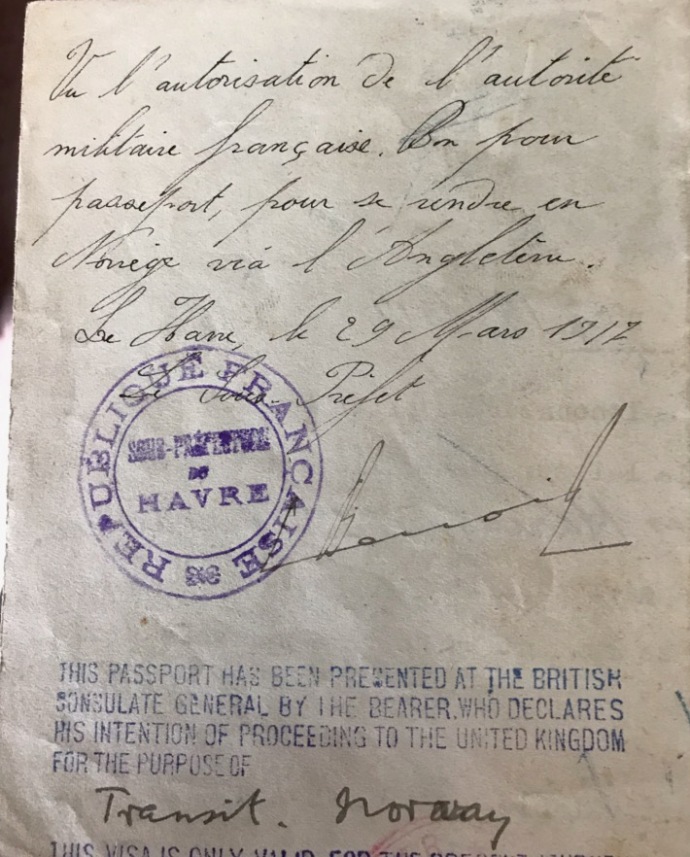 Vu l'autorisation de l'autorité
militaire française. Bon pour
passeport, pour se rendre en
Norvège via l'Angleterre.
Le Havre, le 29 Mars 1917
Le Sous-Préfet
REPUBLIQUE FRANÇAISE
SOUS-PRÉFECTURE
DU
HAVRE
Benoist
THIS PASSPORT HAS BEEN PRESENTED AT THE BRITISH
CONSULATE GENERAL BY THE BEARER WHO DECLARES
HIS INTENTION OF PROCEEDING TO THE UNITED KINGDOM
FOR THE PURPOSE OF
Transit. Norway
THIS VISA IS ONLY VALID FOR THE PRESENT